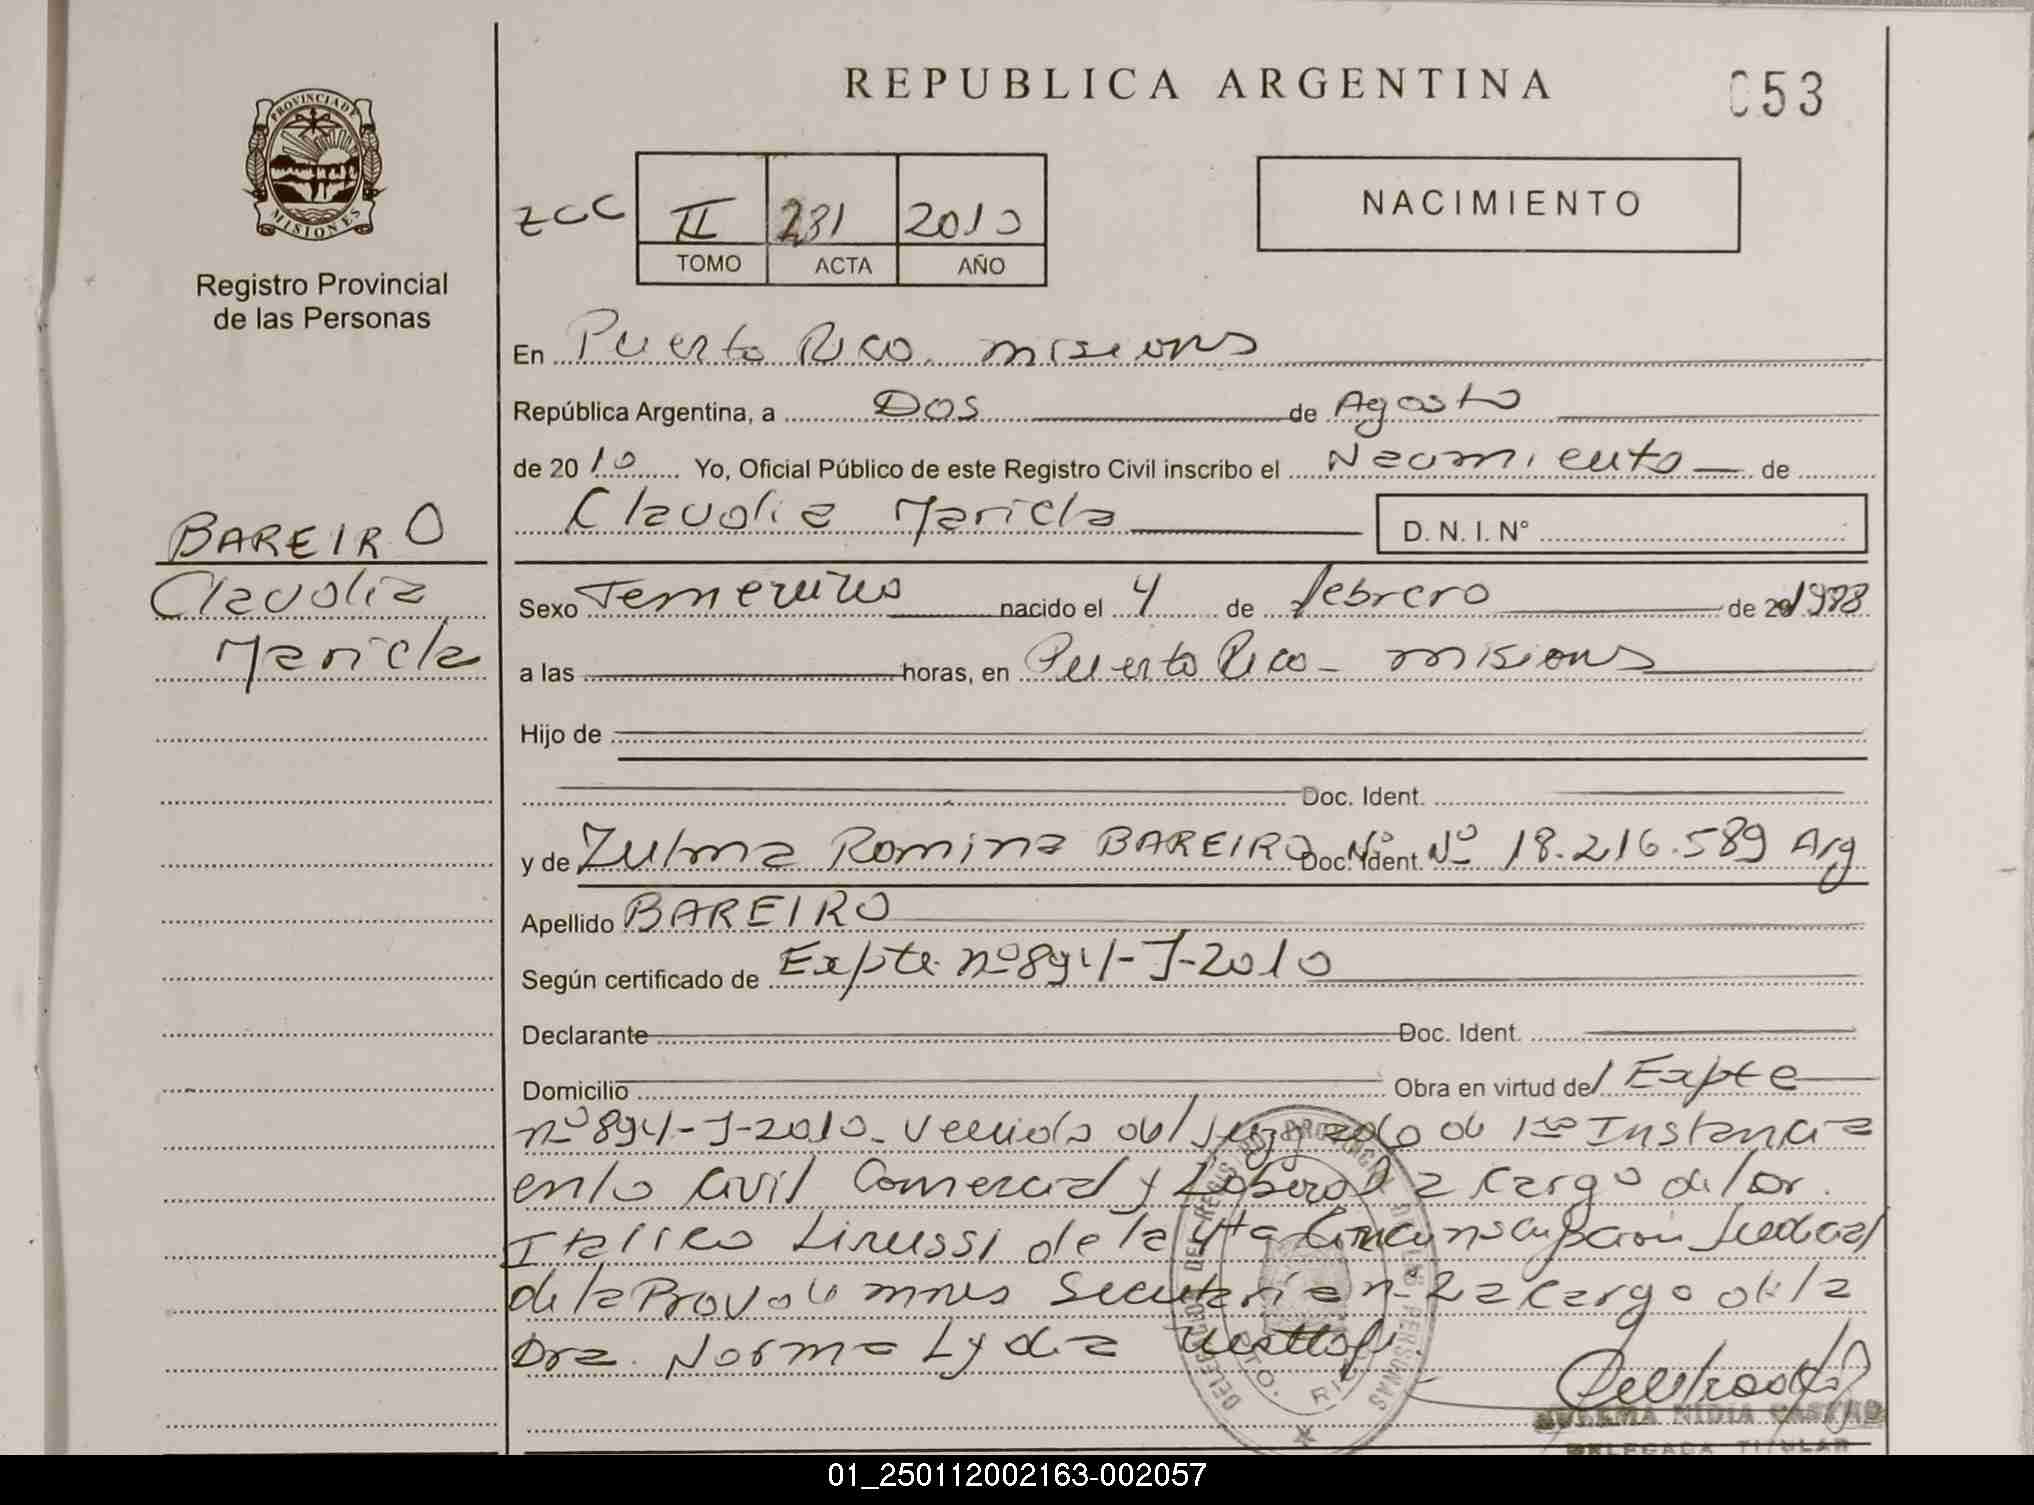 REPUBLICA ARGENTINA
053
PROVINCIA DE
MISIONES
Registro Provincial
de las Personas
ZCC II 231 2010
TOMO ACTA AÑO
NACIMIENTO
En Puerto Rico. misiones
República Argentina, a Dos de Agosto
de 2010 Yo, Oficial Público de este Registro Civil inscribo el Nacimiento de
Claudia Mariela D. N. I. Nº
BAREIRO
Claudia
Mariela
Sexo Femenino nacido el 4 de febrero de 1988
a las horas, en Puerto Rico - misiones
Hijo de
Doc. Ident.
y de Zulma Romina BAREIRO Doc. Ident. Nº 18.216.589 Arg
Apellido BAREIRO
Según certificado de Expte. nº 894-J-2010
Declarante Doc. Ident.
Domicilio Obra en virtud del Expte
nº 894-J-2010. venido del Juzgado de 1ra Instancia
en lo Civil Comercial y Laboral a cargo del Dr.
Italico Linussi de la 4ta Circunscripcion Judicial
de la Prov de mnes Secretaria nº 2 a cargo de la
Dra. Norma Lydia
DELEGADA TITULAR
01_250112002163-002057